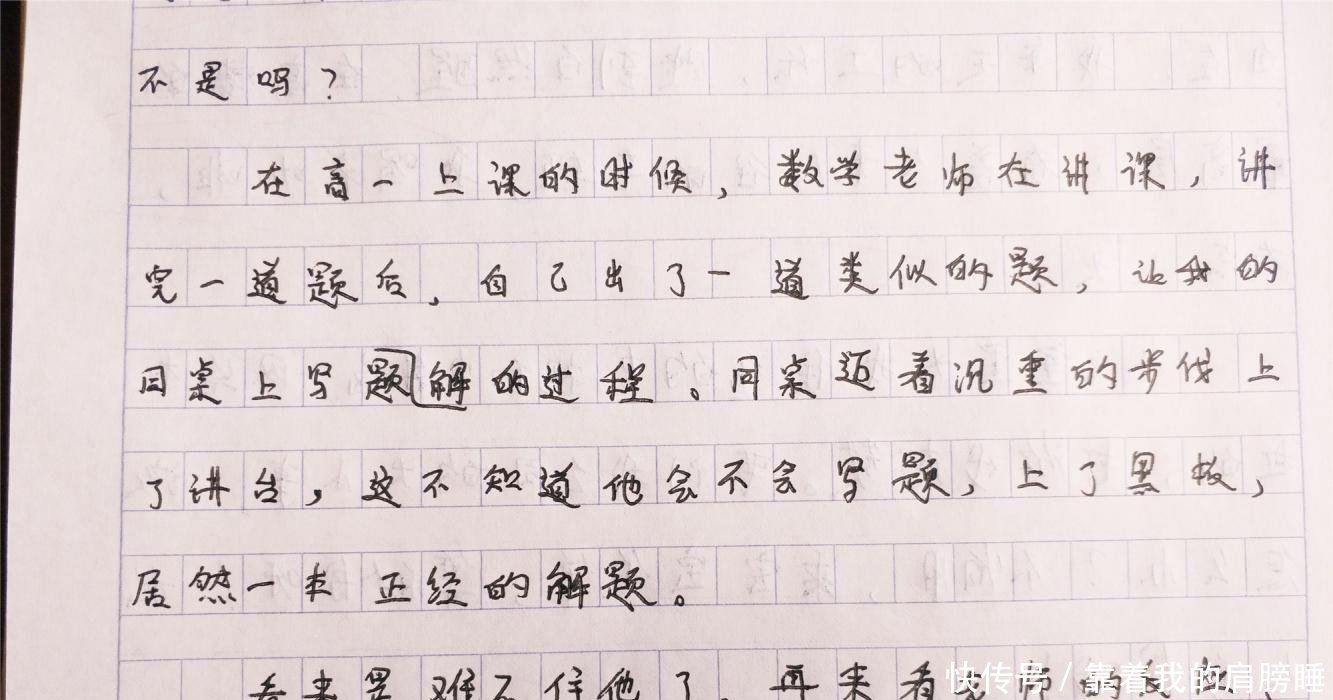 不是吗？
在高一上课的时候，数学老师在讲课，讲
完一道题后，自己出了一道类似的题，让我的
同桌上写题解的过程。同桌迈着沉重的步伐上
了讲台，这不知道他会不会写题，上了黑板，
居然一本正经的解题。
看来是难不住他了，再来看
快传号 / 靠着我的肩膀睡